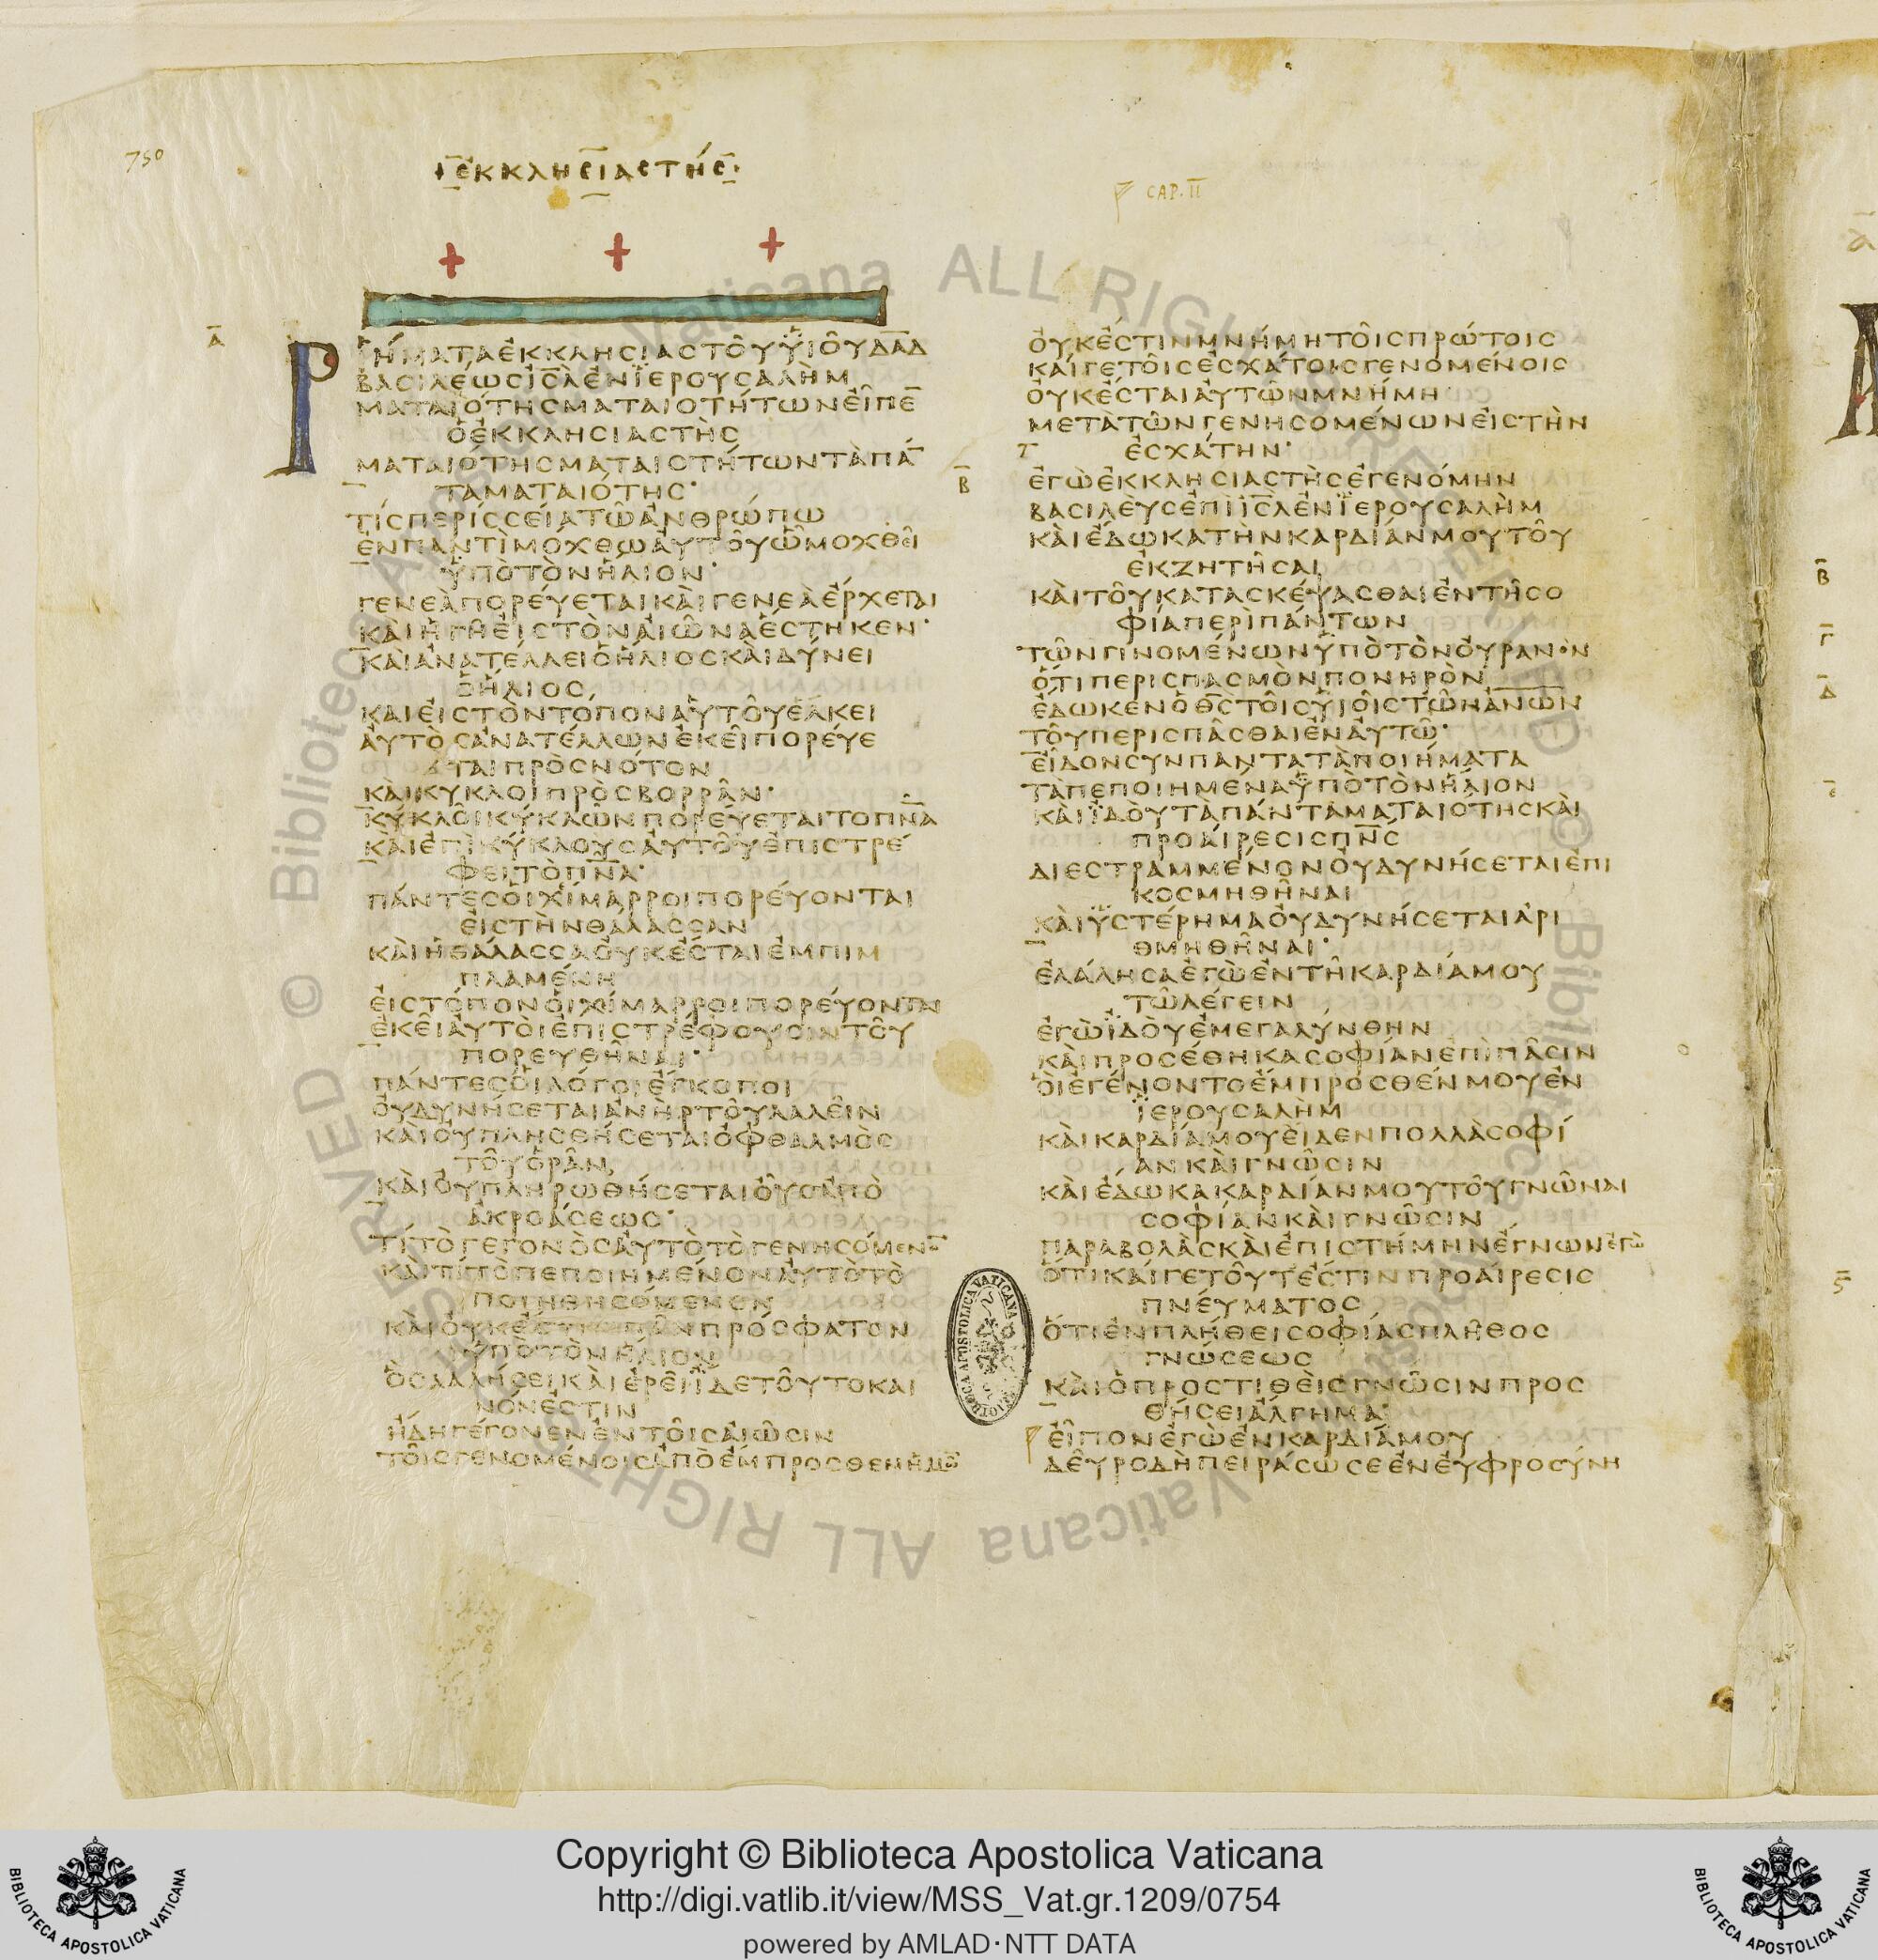 750
ΕΚΚΛΗCΙΑCΤΗC
CAP. II
Α
ΡΗΜΑΤΑΕΚΚΛΗCΙΑCΤΟΥΥΙΟΥΔΑΔ
ΒΑCΙΛΕΩCΙCΛΕΝΙΕΡΟΥCΑΛΗΜ
ΜΑΤΑΙΟΤΗCΜΑΤΑΙΟΤΗΤΩΝΕΙΠΕ̅
ΟΕΚΚΛΗCΙΑCΤΗC
ΜΑΤΑΙΟΤΗCΜΑΤΑΙΟΤΗΤΩΝΤΑΠΑ̅
ΤΑΜΑΤΑΙΟΤΗC·
ΤΙCΠΕΡΙCCΕΙΑΤΩΑΝΘΡΩΠΩ
ΕΝΠΑΝΤΙΜΟΧΘΩΑΥΤΟΥΩΜΟΧΘΕΙ
ΥΠΟΤΟΝΗΛΙΟΝ·
ΓΕΝΕΑΠΟΡΕΥΕΤΑΙΚΑΙΓΕΝΕΑΕΡΧΕΤΑΙ
ΚΑΙΗΓΗΕΙCΤΟΝΑΙΩΝΑΕCΤΗΚΕΝ·
ΚΑΙΑΝΑΤΕΛΛΕΙΟΗΛΙΟCΚΑΙΔΥΝΕΙ
ΟΗΛΙΟC,
ΚΑΙΕΙCΤΟΝΤΟΠΟΝΑΥΤΟΥΕΛΚΕΙ
ΑΥΤΟCΑΝΑΤΕΛΛΩΝΕΚΕΙΠΟΡΕΥΕ
ΤΑΙΠΡΟCΝΟΤΟΝ
ΚΑΙΚΥΚΛΟΙΠΡΟCΒΟΡΡΑΝ·
ΚΥΚΛΟΙΚΥΚΛΩΝΠΟΡΕΥΕΤΑΙΤΟΠΝΑ
ΚΑΙΕΠΙΚΥΚΛΟΥCΑΥΤΟΥΕΠΙCΤΡΕ
ΦΕΙΤΟΠΝΑ·
ΠΑΝΤΕCΟΙΧΙΜΑΡΡΟΙΠΟΡΕΥΟΝΤΑΙ
ΕΙCΤΗΝΘΑΛΑCCΑΝ
ΚΑΙΗΘΑΛΑCCΑΟΥΚΕCΤΑΙΕΜΠΙΜ
ΠΛΑΜΕΝΗ
ΕΙCΤΟΠΟΝΟΙΧΙΜΑΡΡΟΙΠΟΡΕΥΟΝΤΑΙ
ΕΚΕΙΑΥΤΟΙΕΠΙCΤΡΕΦΟΥCΙΝΤΟΥ
ΠΟΡΕΥΘΗΝΑΙ·
ΠΑΝΤΕCΟΙΛΟΓΟΙΕΓΚΟΠΟΙ
ΟΥΔΥΝΗCΕΤΑΙΑΝΗΡΤΟΥΛΑΛΕΙΝ
ΚΑΙΟΥΠΛΗCΘΗCΕΤΑΙΟΦΘΑΛΜΟC
ΤΟΥΟΡΑΝ,
ΚΑΙΟΥΠΛΗΡΩΘΗCΕΤΑΙΟΥCΑΠΟ
ΑΚΡΟΑCΕΩC·
ΤΙΤΟΓΕΓΟΝΟCΑΥΤΟΤΟΓΕΝΗCΟΜΕΝΟ̅
ΚΑΙΤΙΤΟΠΕΠΟΙΗΜΕΝΟΝΑΥΤΟΤΟ
ΠΟΙΗΘΗCΟΜΕΝΟΝ
ΚΑΙΟΥΚΕCΤΙΝΠΑΝΠΡΟCΦΑΤΟΝ
ΥΠΟΤΟΝΗΛΙΟΝ
ΟCΛΑΛΗCΕΙΚΑΙΕΡΕΙΙΔΕΤΟΥΤΟΚΑΙ
ΝΟΝΕCΤΙΝ
ΗΔΗΓΕΓΟΝΕΝΕΝΤΟΙCΑΙΩCΙΝ
ΤΟΙCΓΕΝΟΜΕΝΟΙCΑΠΟΕΜΠΡΟCΘΕΝΗΜΩ̅
ΟΥΚΕCΤΙΝΜΝΗΜΗΤΟΙCΠΡΩΤΟΙC
ΚΑΙΓΕΤΟΙCΕCΧΑΤΟΙCΓΕΝΟΜΕΝΟΙC
ΟΥΚΕCΤΑΙΑΥΤΩΝΜΝΗΜΗ
ΜΕΤΑΤΩΝΓΕΝΗCΟΜΕΝΩΝΕΙCΤΗΝ
ΕCΧΑΤΗΝ·
Β
ΕΓΩΕΚΚΛΗCΙΑCΤΗCΕΓΕΝΟΜΗΝ
ΒΑCΙΛΕΥCΕΠΙΙCΛΕΝΙΕΡΟΥCΑΛΗΜ
ΚΑΙΕΔΩΚΑΤΗΝΚΑΡΔΙΑΝΜΟΥΤΟΥ
ΕΚΖΗΤΗCΑΙ
ΚΑΙΤΟΥΚΑΤΑCΚΕΨΑCΘΑΙΕΝΤΗCΟ
ΦΙΑΠΕΡΙΠΑΝΤΩΝ
ΤΩΝΓΙΝΟΜΕΝΩΝΥΠΟΤΟΝΟΥΡΑΝΟΝ
ΟΤΙΠΕΡΙCΠΑCΜΟΝΠΟΝΗΡΟΝ
ΕΔΩΚΕΝΟΘCΤΟΙCΥΙΟΙCΤΩΝΑΝΩΝ
ΤΟΥΠΕΡΙCΠΑCΘΑΙΕΝΑΥΤΩ·
ΕΙΔΟΝCΥΝΠΑΝΤΑΤΑΠΟΙΗΜΑΤΑ
ΤΑΠΕΠΟΙΗΜΕΝΑΥΠΟΤΟΝΗΛΙΟΝ
ΚΑΙΙΔΟΥΤΑΠΑΝΤΑΜΑΤΑΙΟΤΗCΚΑΙ
ΠΡΟΑΙΡΕCΙCΠΝC
ΔΙΕCΤΡΑΜΜΕΝΟΝΟΥΔΥΝΗCΕΤΑΙΕΠΙ
ΚΟCΜΗΘΗΝΑΙ
ΚΑΙΥCΤΕΡΗΜΑΟΥΔΥΝΗCΕΤΑΙΑΡΙ
ΘΜΗΘΗΝΑΙ·
ΕΛΑΛΗCΑΕΓΩΕΝΤΗΚΑΡΔΙΑΜΟΥ
ΤΩΛΕΓΕΙΝ
ΕΓΩΙΔΟΥΕΜΕΓΑΛΥΝΘΗΝ
ΚΑΙΠΡΟCΕΘΗΚΑCΟΦΙΑΝΕΠΙΠΑCΙΝ
ΟΙΕΓΕΝΟΝΤΟΕΜΠΡΟCΘΕΝΜΟΥΕΝ
ΙΕΡΟΥCΑΛΗΜ
ΚΑΙΚΑΡΔΙΑΜΟΥΕΙΔΕΝΠΟΛΛΑCΟΦΙ
ΑΝΚΑΙΓΝΩCΙΝ
ΚΑΙΕΔΩΚΑΚΑΡΔΙΑΝΜΟΥΤΟΥΓΝΩΝΑΙ
CΟΦΙΑΝΚΑΙΓΝΩCΙΝ
ΠΑΡΑΒΟΛΑCΚΑΙΕΠΙCΤΗΜΗΝΕΓΝΩΝΕΓΩ
ΟΤΙΚΑΙΓΕΤΟΥΤΕCΤΙΝΠΡΟΑΙΡΕCΙC
ΠΝΕΥΜΑΤΟC
ΟΤΙΕΝΠΛΗΘΕΙCΟΦΙΑCΠΛΗΘΟC
ΓΝΩCΕΩC
ΚΑΙΟΠΡΟCΤΙΘΕΙCΓΝΩCΙΝΠΡΟC
ΘΗCΕΙΑΛΓΗΜΑ·
ΕΙΠΟΝΕΓΩΕΝΚΑΡΔΙΑΜΟΥ
ΔΕΥΡΟΔΗΠΕΙΡΑCΩCΕΕΝΕΥΦΡΟCΥΝΗ
Β
Γ
Δ
Ε
Copyright © Biblioteca Apostolica Vaticana
http://digi.vatlib.it/view/MSS_Vat.gr.1209/0754
powered by AMLAD·NTT DATA
BIBLIOTECA APOSTOLICA VATICANA
BIBLIOTECA APOSTOLICA VATICANA